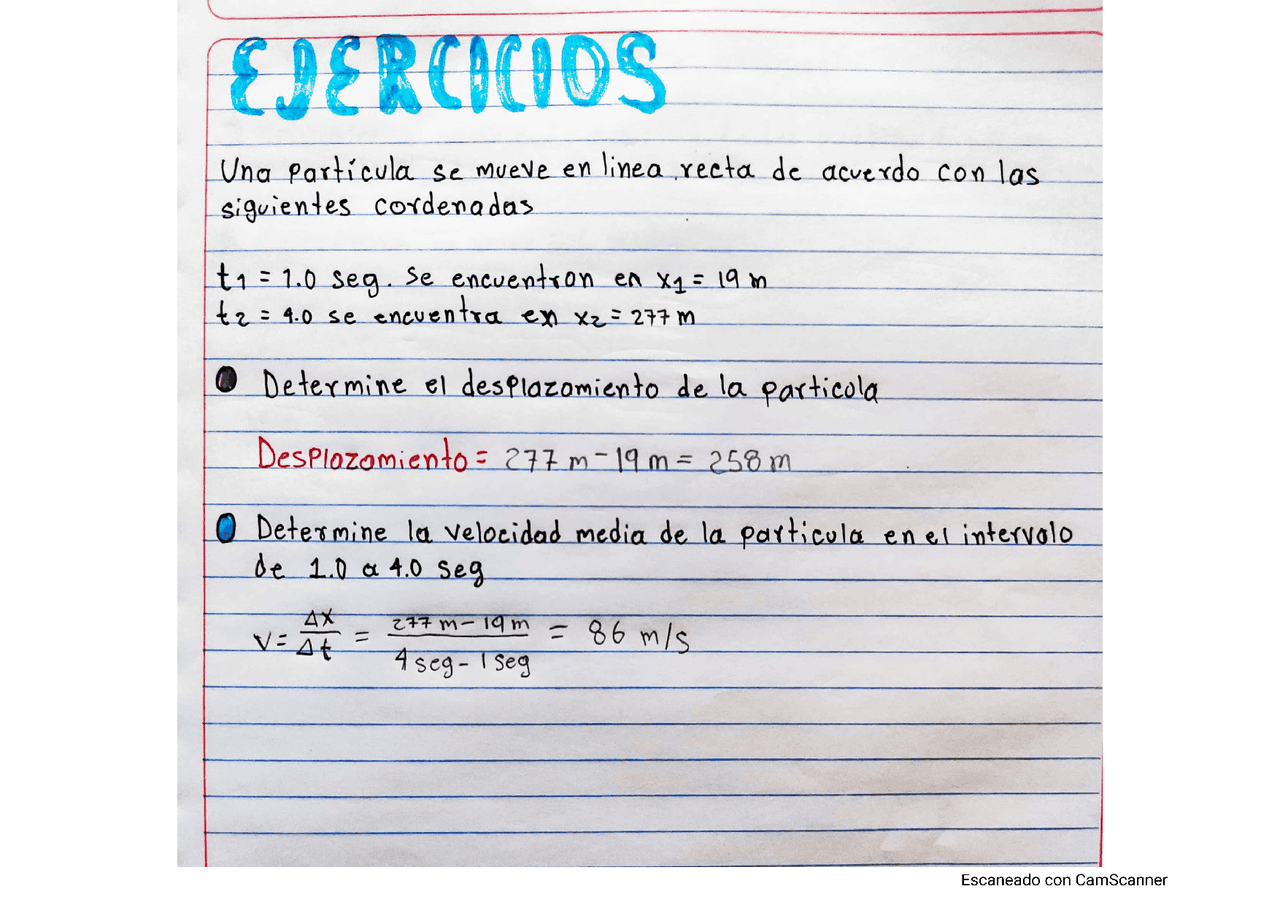 EJERCICIOS
Una partícula se mueve en linea recta de acuerdo con las
siguientes cordenadas
t1 = 1.0 seg. Se encuentron en x1 = 19 m
t2 = 4.0 se encuentra en x2 = 277 m
Determine el desplazomiento de la particola
Desplozomiento = 277 m - 19 m = 258 m
Determine la velocidad media de la particula en el intervalo
de 1.0 a 4.0 seg
v = Δx/Δt = 277 m - 19 m / 4 seg - 1 seg = 86 m/s
Escaneado con CamScanner